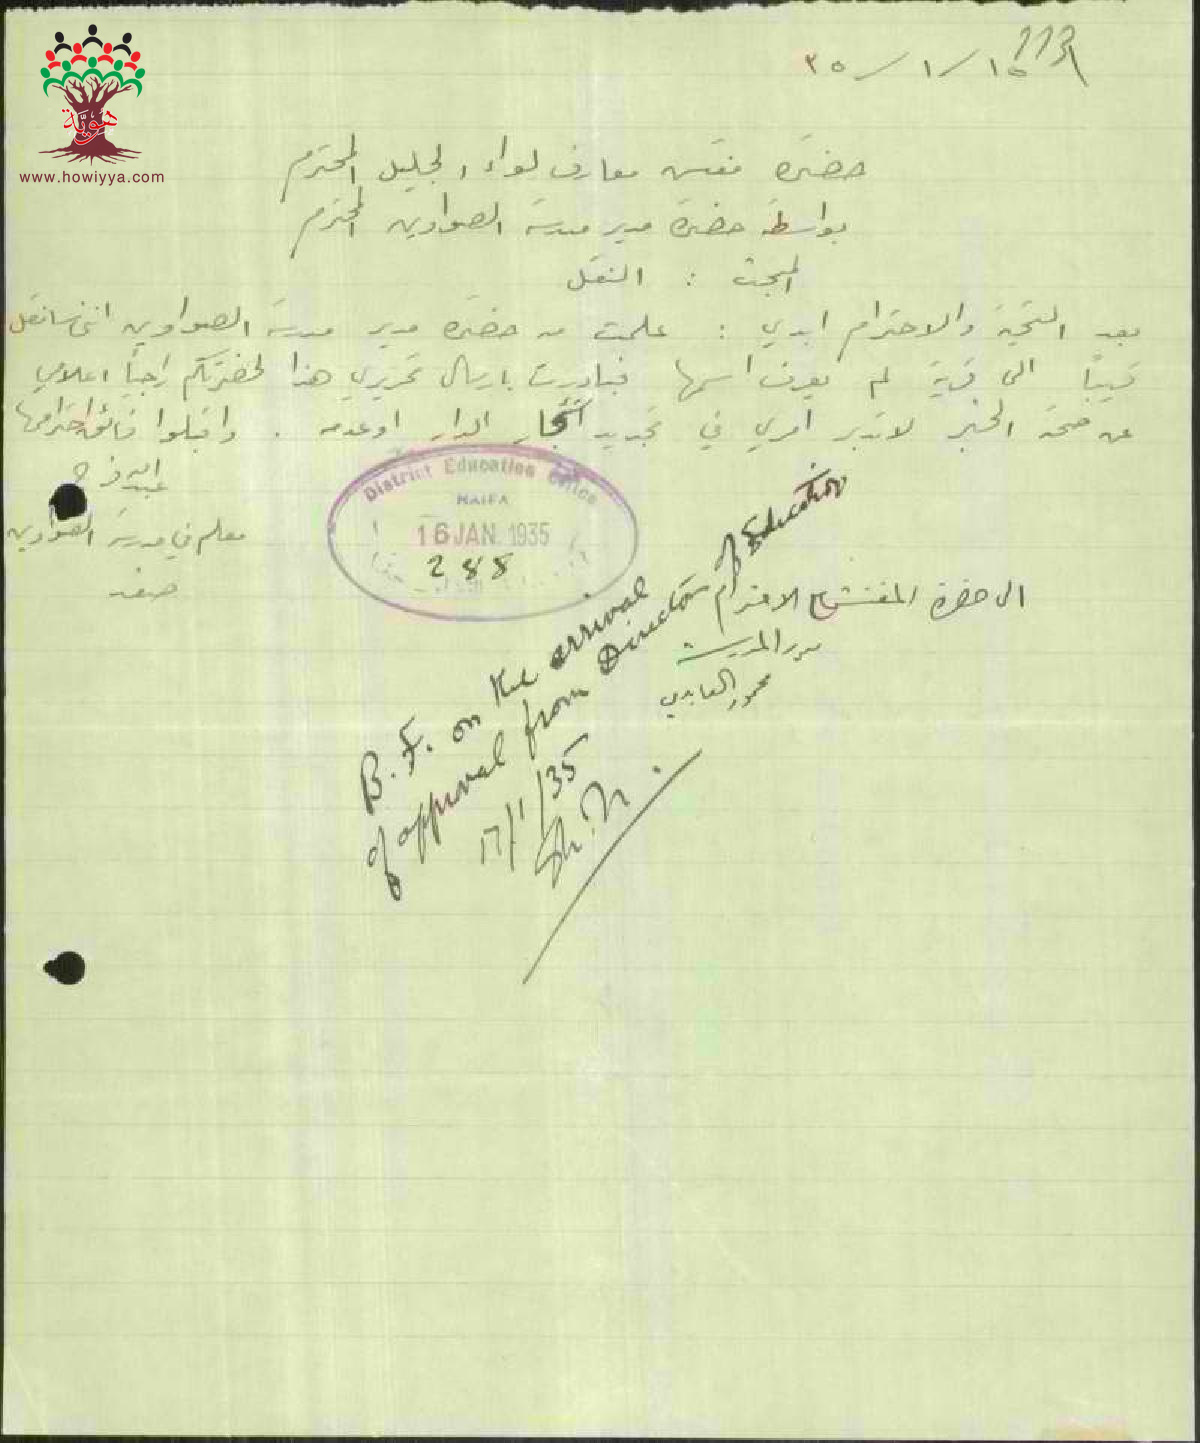 هوية
www.howiyya.com
١٥/١/٣٥
حضرة مفتش معارف لواء الجليل المحترم
بواسطة حضرة مدير مدرسة الصواوين المحترم
المبحث : النقل
بعد التحية والاحترام ابدي : علمت من حضرة مدير مدرسة الصواوين انني سانقل
قريباً الى قرية لم يعرف اسمها فبادرت بارسال تحريري هذا لحضرتكم راجياً اعلامي
عن صحة الخبر لاتدبر امري في تجديد استئجار الدار او عدمه . واقبلوا فائق احترامي
عبدالله فرح
معلم في مدرسة الصواوين
صفد
District Education Office
HAIFA
16 JAN. 1935
288
الى حضرة المفتش مع الاحترام
مدير المدرسة
محمود العابدي
B.F. on the arrival
of approval from Director of Education
17/1/35
Sh. N.